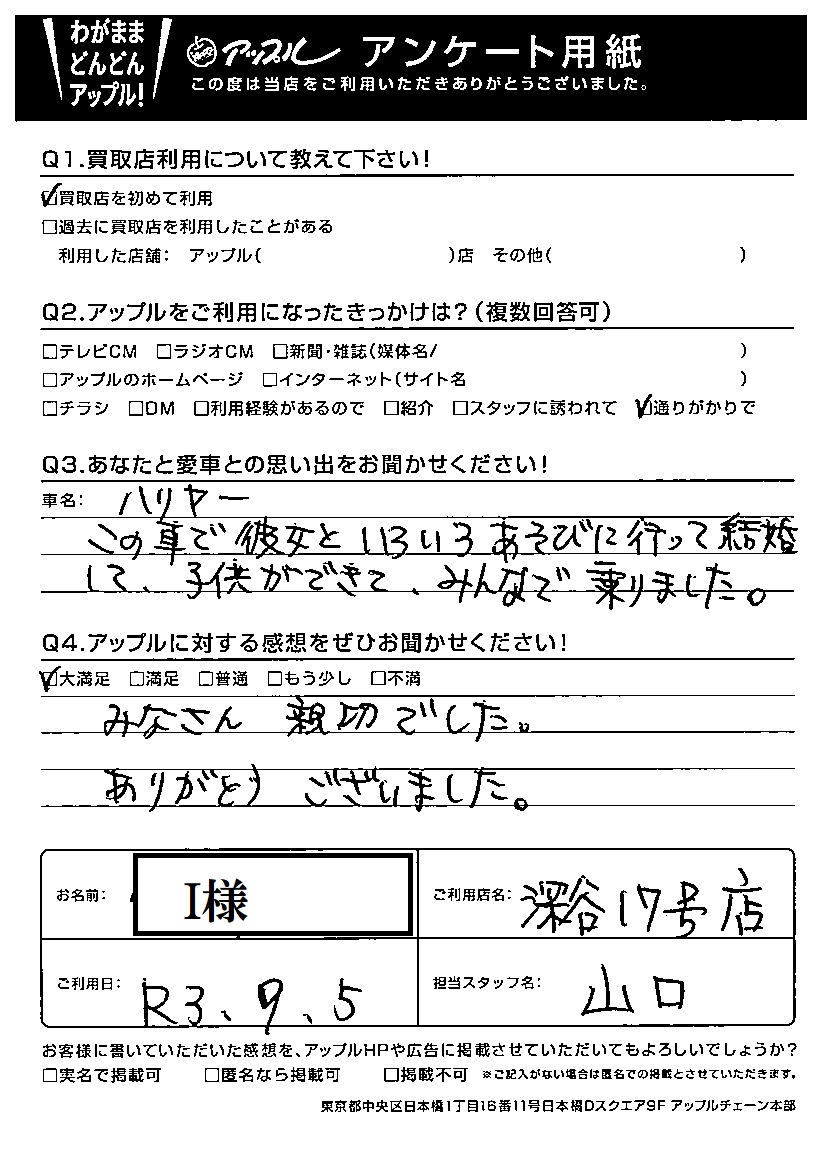 わがまま
どんどん
アップル!
アップル アンケート用紙
この度は当店をご利用いただきありがとうございました。
Q1.買取店利用について教えて下さい!
☑買取店を初めて利用
□過去に買取店を利用したことがある
利用した店舗: アップル( )店 その他( )
Q2.アップルをご利用になったきっかけは?(複数回答可)
□テレビCM □ラジオCM □新聞・雑誌(媒体名/ )
□アップルのホームページ □インターネット(サイト名 )
□チラシ □DM □利用経験があるので □紹介 □スタッフに誘われて ☑通りがかりで
Q3.あなたと愛車との思い出をお聞かせください!
車名: ハリヤー
この車で彼女といろいろあそびに行って結婚
して、子供ができて、みんなで乗りました。
Q4.アップルに対する感想をぜひお聞かせください!
☑大満足 □満足 □普通 □もう少し □不満
みなさん 親切でした。
ありがとう ございました。
お名前: I様
ご利用店名: 深谷17号店
ご利用日: R3、9、5
担当スタッフ名: 山口
お客様に書いていただいた感想を、アップルHPや広告に掲載させていただいてもよろしいでしょうか?
□実名で掲載可 □匿名なら掲載可 □掲載不可 ※ご記入がない場合は匿名での掲載とさせていただきます。
東京都中央区日本橋1丁目16番11号日本橋Dスクエア9F アップルチェーン本部